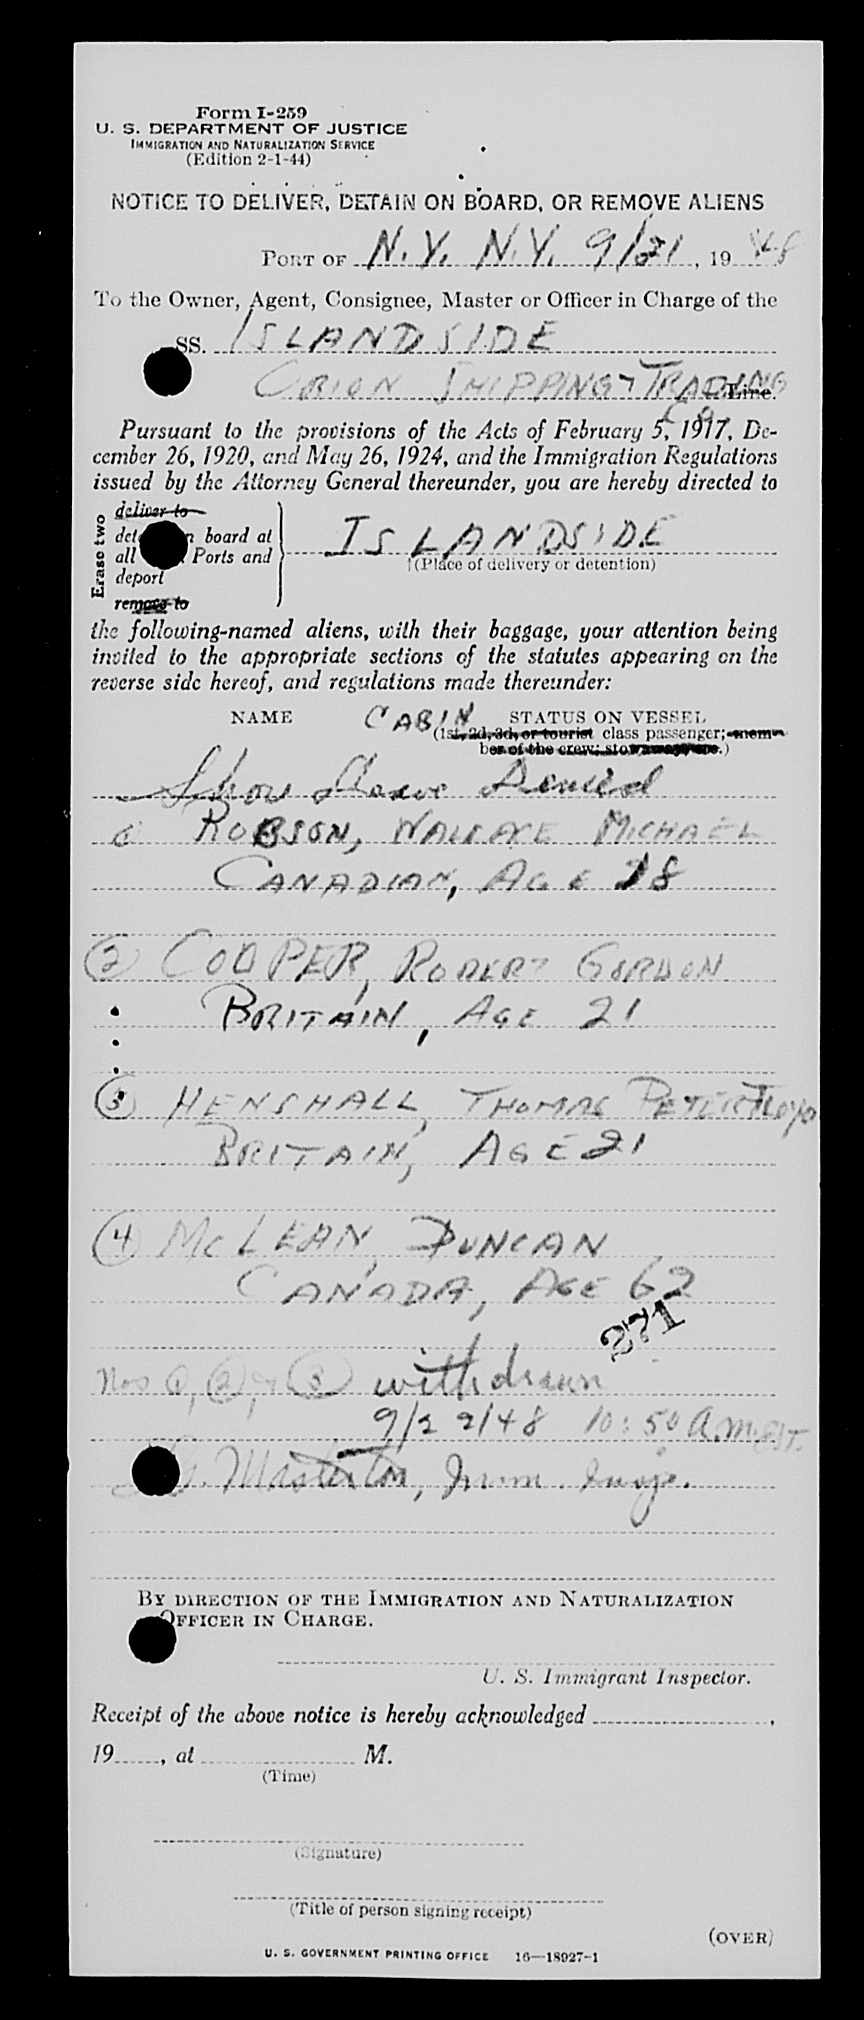 Form I-259
U. S. DEPARTMENT OF JUSTICE
IMMIGRATION AND NATURALIZATION SERVICE
(Edition 2-1-44)
NOTICE TO DELIVER, DETAIN ON BOARD, OR REMOVE ALIENS
PORT OF N.Y. N.Y. 9/21, 1948
To the Owner, Agent, Consignee, Master or Officer in Charge of the
SS. ISLANDSIDE
ORION SHIPPING & TRADING Line.
Co.
Pursuant to the provisions of the Acts of February 5, 1917, De-
cember 26, 1920, and May 26, 1924, and the Immigration Regulations
issued by the Attorney General thereunder, you are hereby directed to
Erase two
deliver to
board at
all Ports and
deport
remove to
ISLANDSIDE
(Place of delivery or detention)
the following-named aliens, with their baggage, your attention being
invited to the appropriate sections of the statutes appearing on the
reverse side hereof, and regulations made thereunder:
NAME CABIN STATUS ON VESSEL
(1st, 2d, 3d, or tourist class passenger; mem-
ber of the crew; stowaway, etc.)
Shore Leave Denied
ROBSON, WALLACE MICHAEL
CANADIAN, AGE 28
(2) COOPER, ROBERT GORDON
BRITAIN, AGE 21
(3) HENSHALL, THOMAS PETER FLOYD
BRITAIN, AGE 21
(4) MCLEAN, DUNCAN
CANADA, AGE 62
271
Nos (1), (2), & (3) withdrawn
9/22/48 10:50 A.M. EST.
Masterton, Imm. Insp.
BY DIRECTION OF THE IMMIGRATION AND NATURALIZATION
OFFICER IN CHARGE.
U. S. Immigrant Inspector.
Receipt of the above notice is hereby acknowledged ,
19 , at M.
(Time)
(Signature)
(Title of person signing receipt)
(OVER)
U. S. GOVERNMENT PRINTING OFFICE 16—18927-1